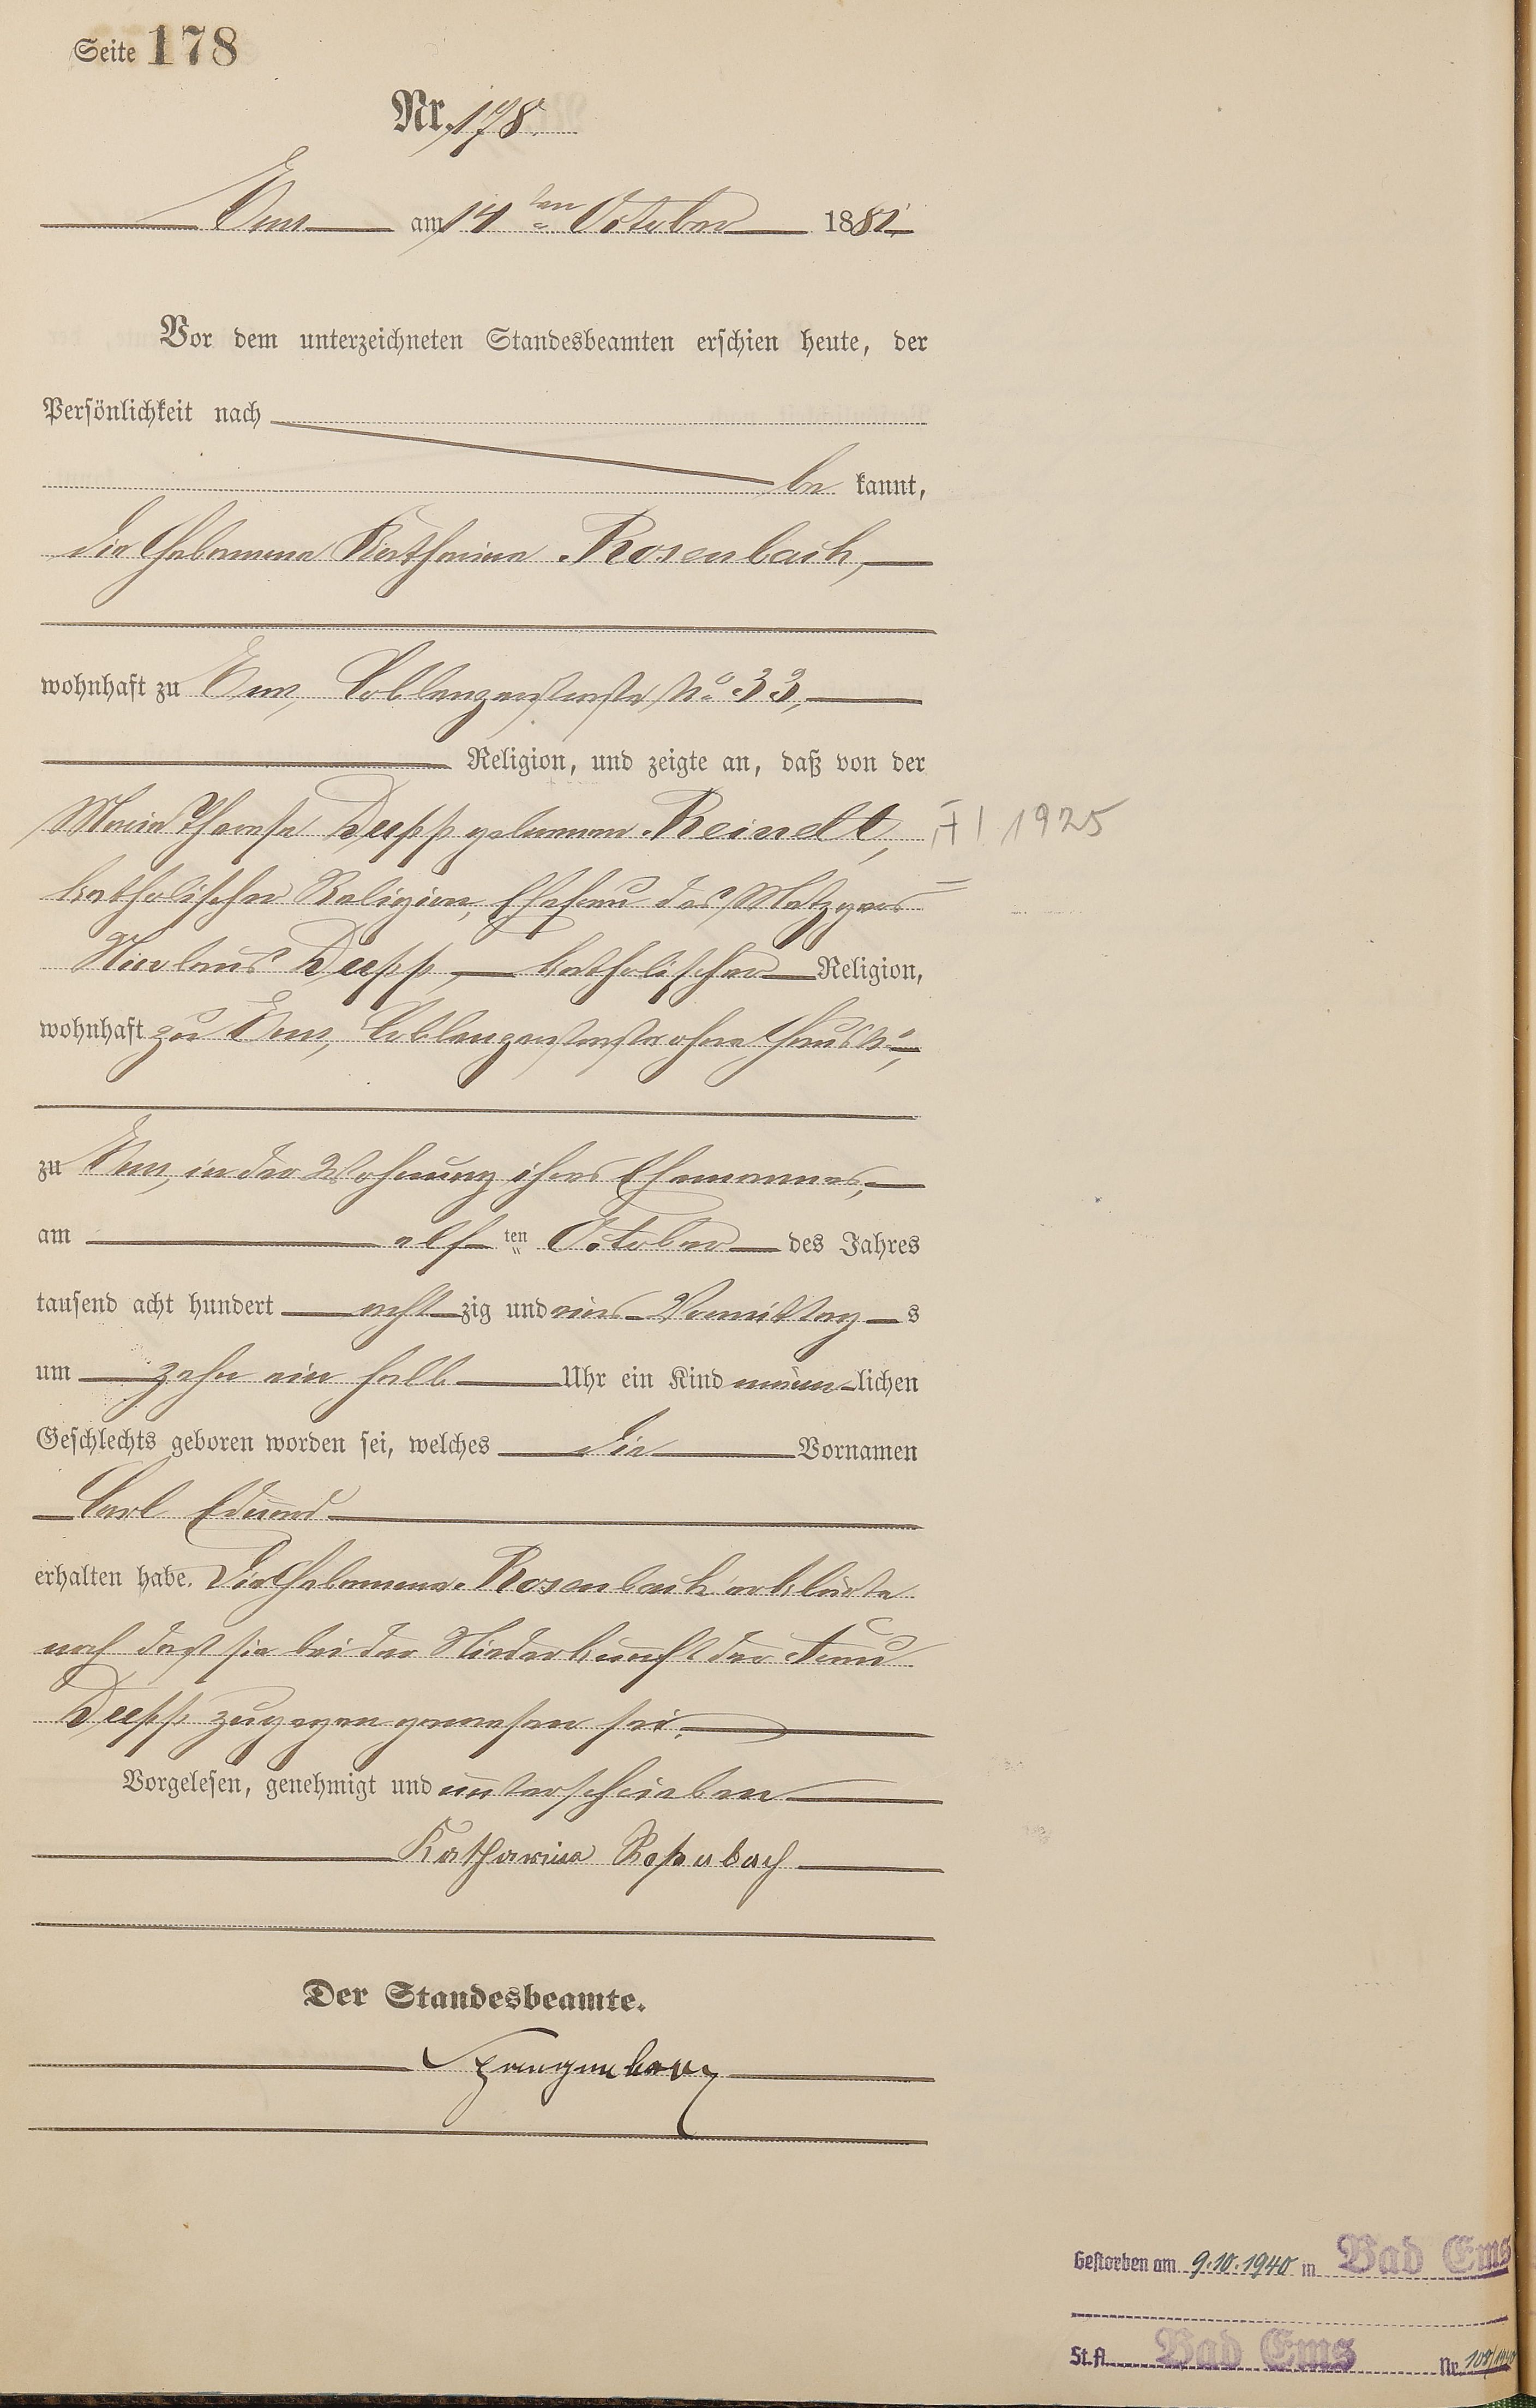 Seite 178
Nr. 178.
Ems am 14ten October 1881.
Vor dem unterzeichneten Standesbeamten erschien heute, der
Persönlichkeit nach
be kannt,
die Hebamme Katharina Rosenbach,
wohnhaft zu Ems, Coblenzerstraße No 33,
Religion, und zeigte an, daß von der
Maria Therese Depp geborenen Reindt,
I 1925
katholischer Religion, Ehefrau des Metzgers
Nicolaus Depp, katholischer Religion,
wohnhaft zu Ems, Coblenzerstraße ohne Haus No,
zu Ems, in der Wohnung ihres Ehemannes,
am elf ten October des Jahres
tausend acht hundert acht zig und eins Vormittag s
um zehn ein halb Uhr ein Kind männ lichen
Geschlechts geboren worden sei, welches die Vornamen
Carl Eduard
erhalten habe. Die Hebamme Rosenbach erklärte
noch daß sie bei der Niederkunft der Frau
Depp zugegen gewesen sei.
Vorgelesen, genehmigt und unterschrieben
Katharina Rosenbach
Der Standesbeamte.
Spangenberg
Gestorben am 9.10.1940 in Bad Ems
St.A. Bad Ems Nr. 108/1940